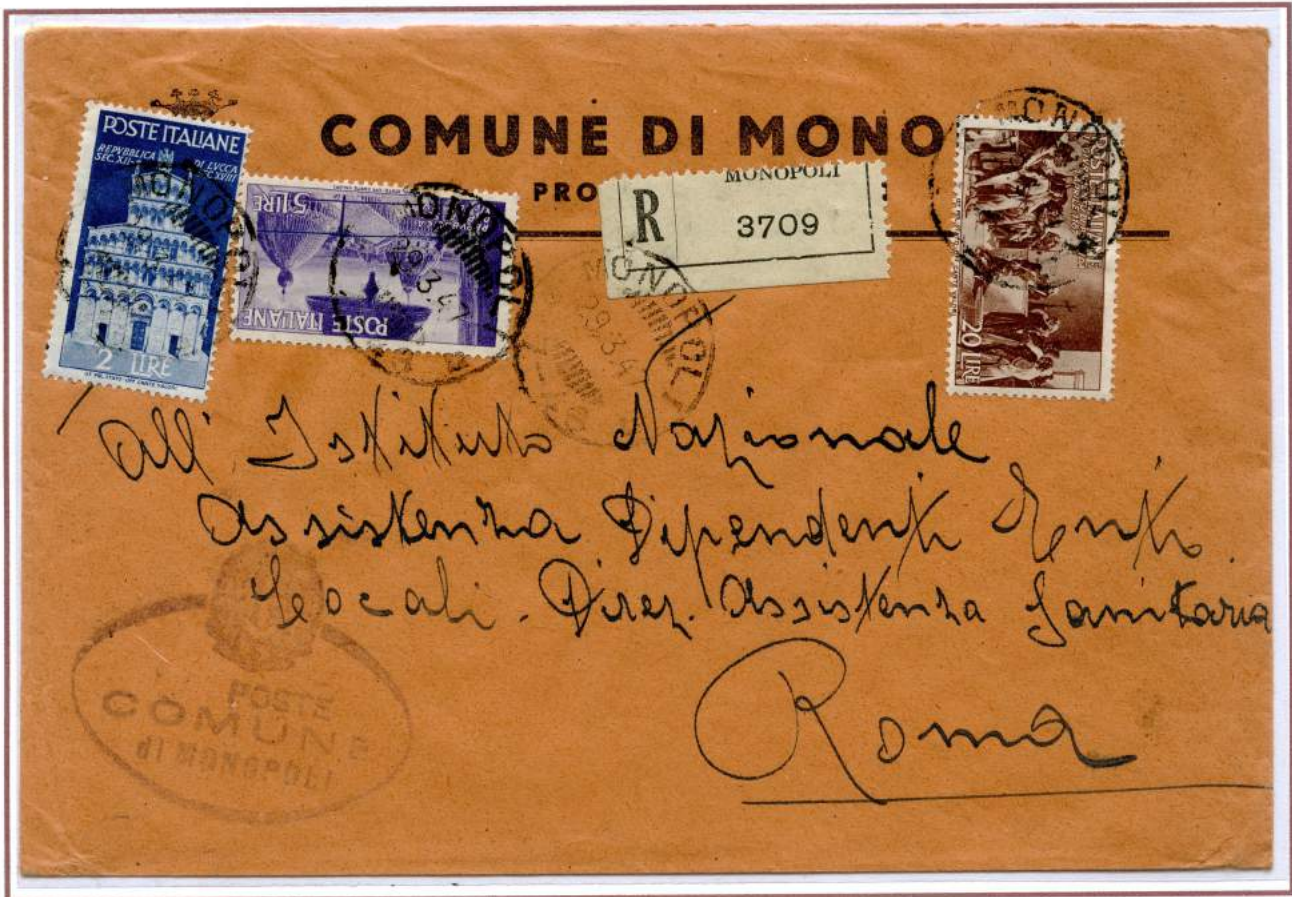 COMUNE DI MONO
PRO
POSTE ITALIANE
REPVBBLICA DI LVCCA
SEC. XII-
C. XVIII
2 LIRE
5 LIRE
POSTE ITALIANE
MONOPOLI
R
3709
MONOPOLI
29.3.47
MONOPOLI
29.3.4
MONOPOLI
MONOPOLI
POSTE ITALIANE
20 LIRE
All' Istituto Nazionale
Assistenza Dipendenti Enti
Locali - Direz. Assistenza Sanitaria
Roma
POSTE
COMUNE
di MONOPOLI